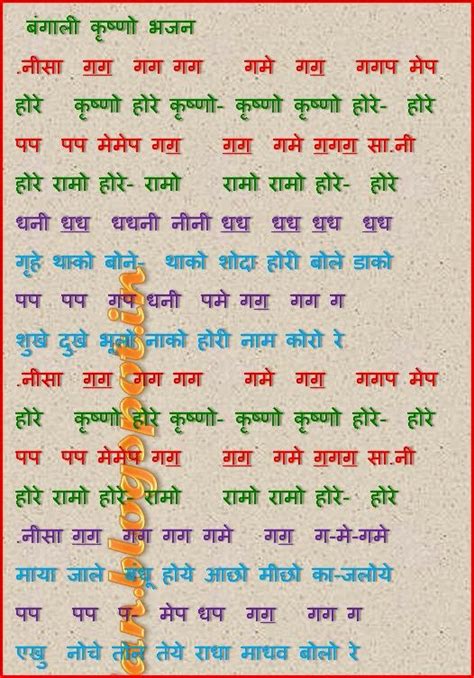 बंगाली कृष्णो भजन
.नीसा गग गग गग गमे गग गगप मेप
होरे कृष्णो होरे कृष्णो- कृष्णो कृष्णो होरे- होरे
पप पप मेमेप गग गग गमे गगग सा.नी
होरे रामो होरे- रामो रामो रामो होरे- होरे
धनी धध धधनी नीनी धध धध धध धध
गृहे थाको बोने- थाको शोदा होरी बोले डाको
पप पप गप धनी पमे गग गग ग
शुखे दुखे भूलो नाको होरी नाम कोरो रे
.नीसा गग गग गग गमे गग गगप मेप
होरे कृष्णो होरे कृष्णो- कृष्णो कृष्णो होरे- होरे
पप पप मेमेप गग गग गमे गगग सा.नी
होरे रामो होरे- रामो रामो रामो होरे- होरे
.नीसा गग गग गग गमे गग ग-मे-गमे
माया जाले बंधू होये आछो मीछो का-जलोये
पप पप प- मेप धप गग गग ग
एखु नोचे तोन तेये राधा माधव बोलो रे
an.blogspot.in